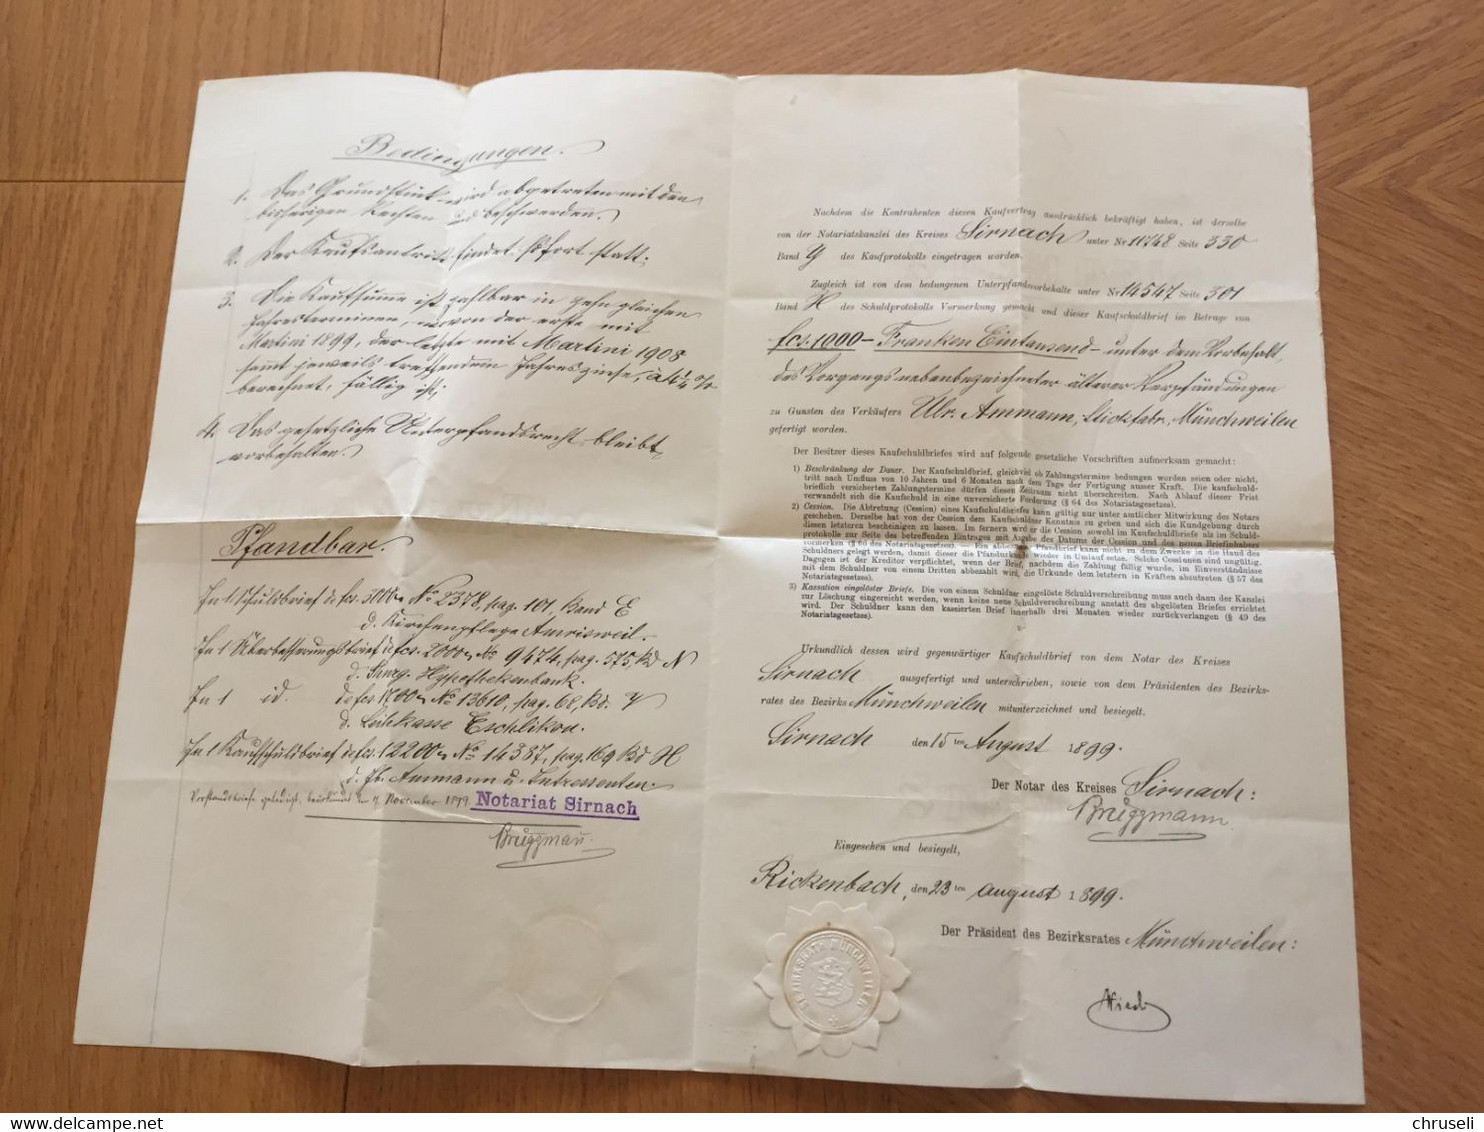 Bedingungen.
1. Das Grundstück wird abgetreten mit den
bisherigen Rechten und Beschwerden.
2. Der Kaufsantritt findet sofort statt.
3. Die Kaufsumme ist zahlbar in zehn gleichen
Jahresterminen, wovon der erste mit
Martini 1899, der letzte mit Martini 1908
samt jeweils treffendem Jahreszinse, à 4 1/4 %
berechnet, fällig ist;
4. Das gesetzliche Unterpfandsrecht bleibt
vorbehalten.
Pfandbar.
In 1 Schuldbrief de fcs. 5000.- No 2378, pag. 101, Band E
d. Kirchenpflege Amrisweil.
In 1 Überbesserungsbrief de fcs. 2000.- No 9474, pag. 575, Bd N
d. Thurg. Hypothekenbank.
In 1 id. de fcs 1700.- No 13610, pag. 68, Bd.
d. Leihkasse Eschlikon.
In 1 Kaufschuldbrief de fcs. 12200.- No 14387, pag. 169 Bd H
d. Ammann u. Intressenten.
November 1899. Notariat Sirnach
Brüggmann
Nachdem die Kontrahenten diesen Kaufvertrag ausdrücklich bekräftigt haben, ist derselbe
von der Notariatskanzlei des Kreises Sirnach unter Nr 10748 Seite 330
Band Y des Kaufprotokolls eingetragen worden.
Zugleich ist von dem bedungenen Unterpfandsvorbehalte unter Nr 14547 Seite 301
Band H des Schuldprotokolls Vormerkung gemacht und dieser Kaufschuldbrief im Betrage von
fcs. 1000 – Franken Eintausend – unter dem Vorbehalt
des Vorgangs nebenbezeichneter älterer Verpfändungen
zu Gunsten des Verkäufers Ulr. Ammann, Stickfabr., Münchweilen
gefertigt worden.
Der Besitzer dieses Kaufschuldbriefes wird auf folgende gesetzliche Vorschriften aufmerksam gemacht:
1) Beschränkung der Dauer. Der Kaufschuldbrief, gleichviel ob Zahlungstermine bedungen worden seien oder nicht,
tritt nach Umfluss von 10 Jahren und 6 Monaten nach dem Tage der Fertigung ausser Kraft. Die kaufschuld-
brieflich versicherten Zahlungstermine dürfen diesen Zeitraum nicht überschreiten. Nach Ablauf dieser Frist
verwandelt sich die Kaufschuld in eine unversicherte Forderung (§ 64 des Notariatsgesetzes).
2) Cession. Die Abtretung (Cession) eines Kaufschuldbriefes kann gültig nur unter amtlicher Mitwirkung des Notars
geschehen. Derselbe hat von der Cession dem Kaufschuldner Kenntnis zu geben und sich die Kundgebung durch
diesen letzteren bescheinigen zu lassen. Im fernern wird er die Cession sowohl im Kaufschuldbriefe als im Schuld-
protokolle zur Seite des betreffenden Eintrages mit Angabe des Datums der Cession und des neuen Briefinhabers
vormerken (§ 66 des Notariatsgesetzes). — Ein abbezahlter Pfandbrief kann nicht zu dem Zwecke in die Hand des
Schuldners gelegt werden, damit dieser die Pfandurkunde wieder in Umlauf setze. Solche Cessionen sind ungültig.
Dagegen ist der Kreditor verpflichtet, wenn der Brief, nachdem die Zahlung fällig wurde, im Einverständnisse
mit dem Schuldner von einem Dritten abbezahlt wird, die Urkunde dem letztern in Kräften abzutreten (§ 57 des
Notariatsgesetzes).
3) Kassation eingelöster Briefe. Die von einem Schuldner eingelöste Schuldverschreibung muss auch dann der Kanzlei
zur Löschung eingereicht werden, wenn keine neue Schuldverschreibung anstatt des abgelösten Briefes errichtet
wird. Der Schuldner kann den kassierten Brief innerhalb drei Monaten wieder zurückverlangen (§ 49 des
Notariatsgesetzes).
Urkundlich dessen wird gegenwärtiger Kaufschuldbrief von dem Notar des Kreises
Sirnach ausgefertigt und unterschrieben, sowie von dem Präsidenten des Bezirks-
rates des Bezirks Münchweilen mitunterzeichnet und besiegelt.
Sirnach den 15ten August 1899.
Der Notar des Kreises Sirnach:
Brüggmann
Eingesehen und besiegelt,
Rickenbach, den 23ten August 1899.
Der Präsident des Bezirksrates Münchweilen:
BEZIRKSRATH MÜNCHWEILEN
chruseli